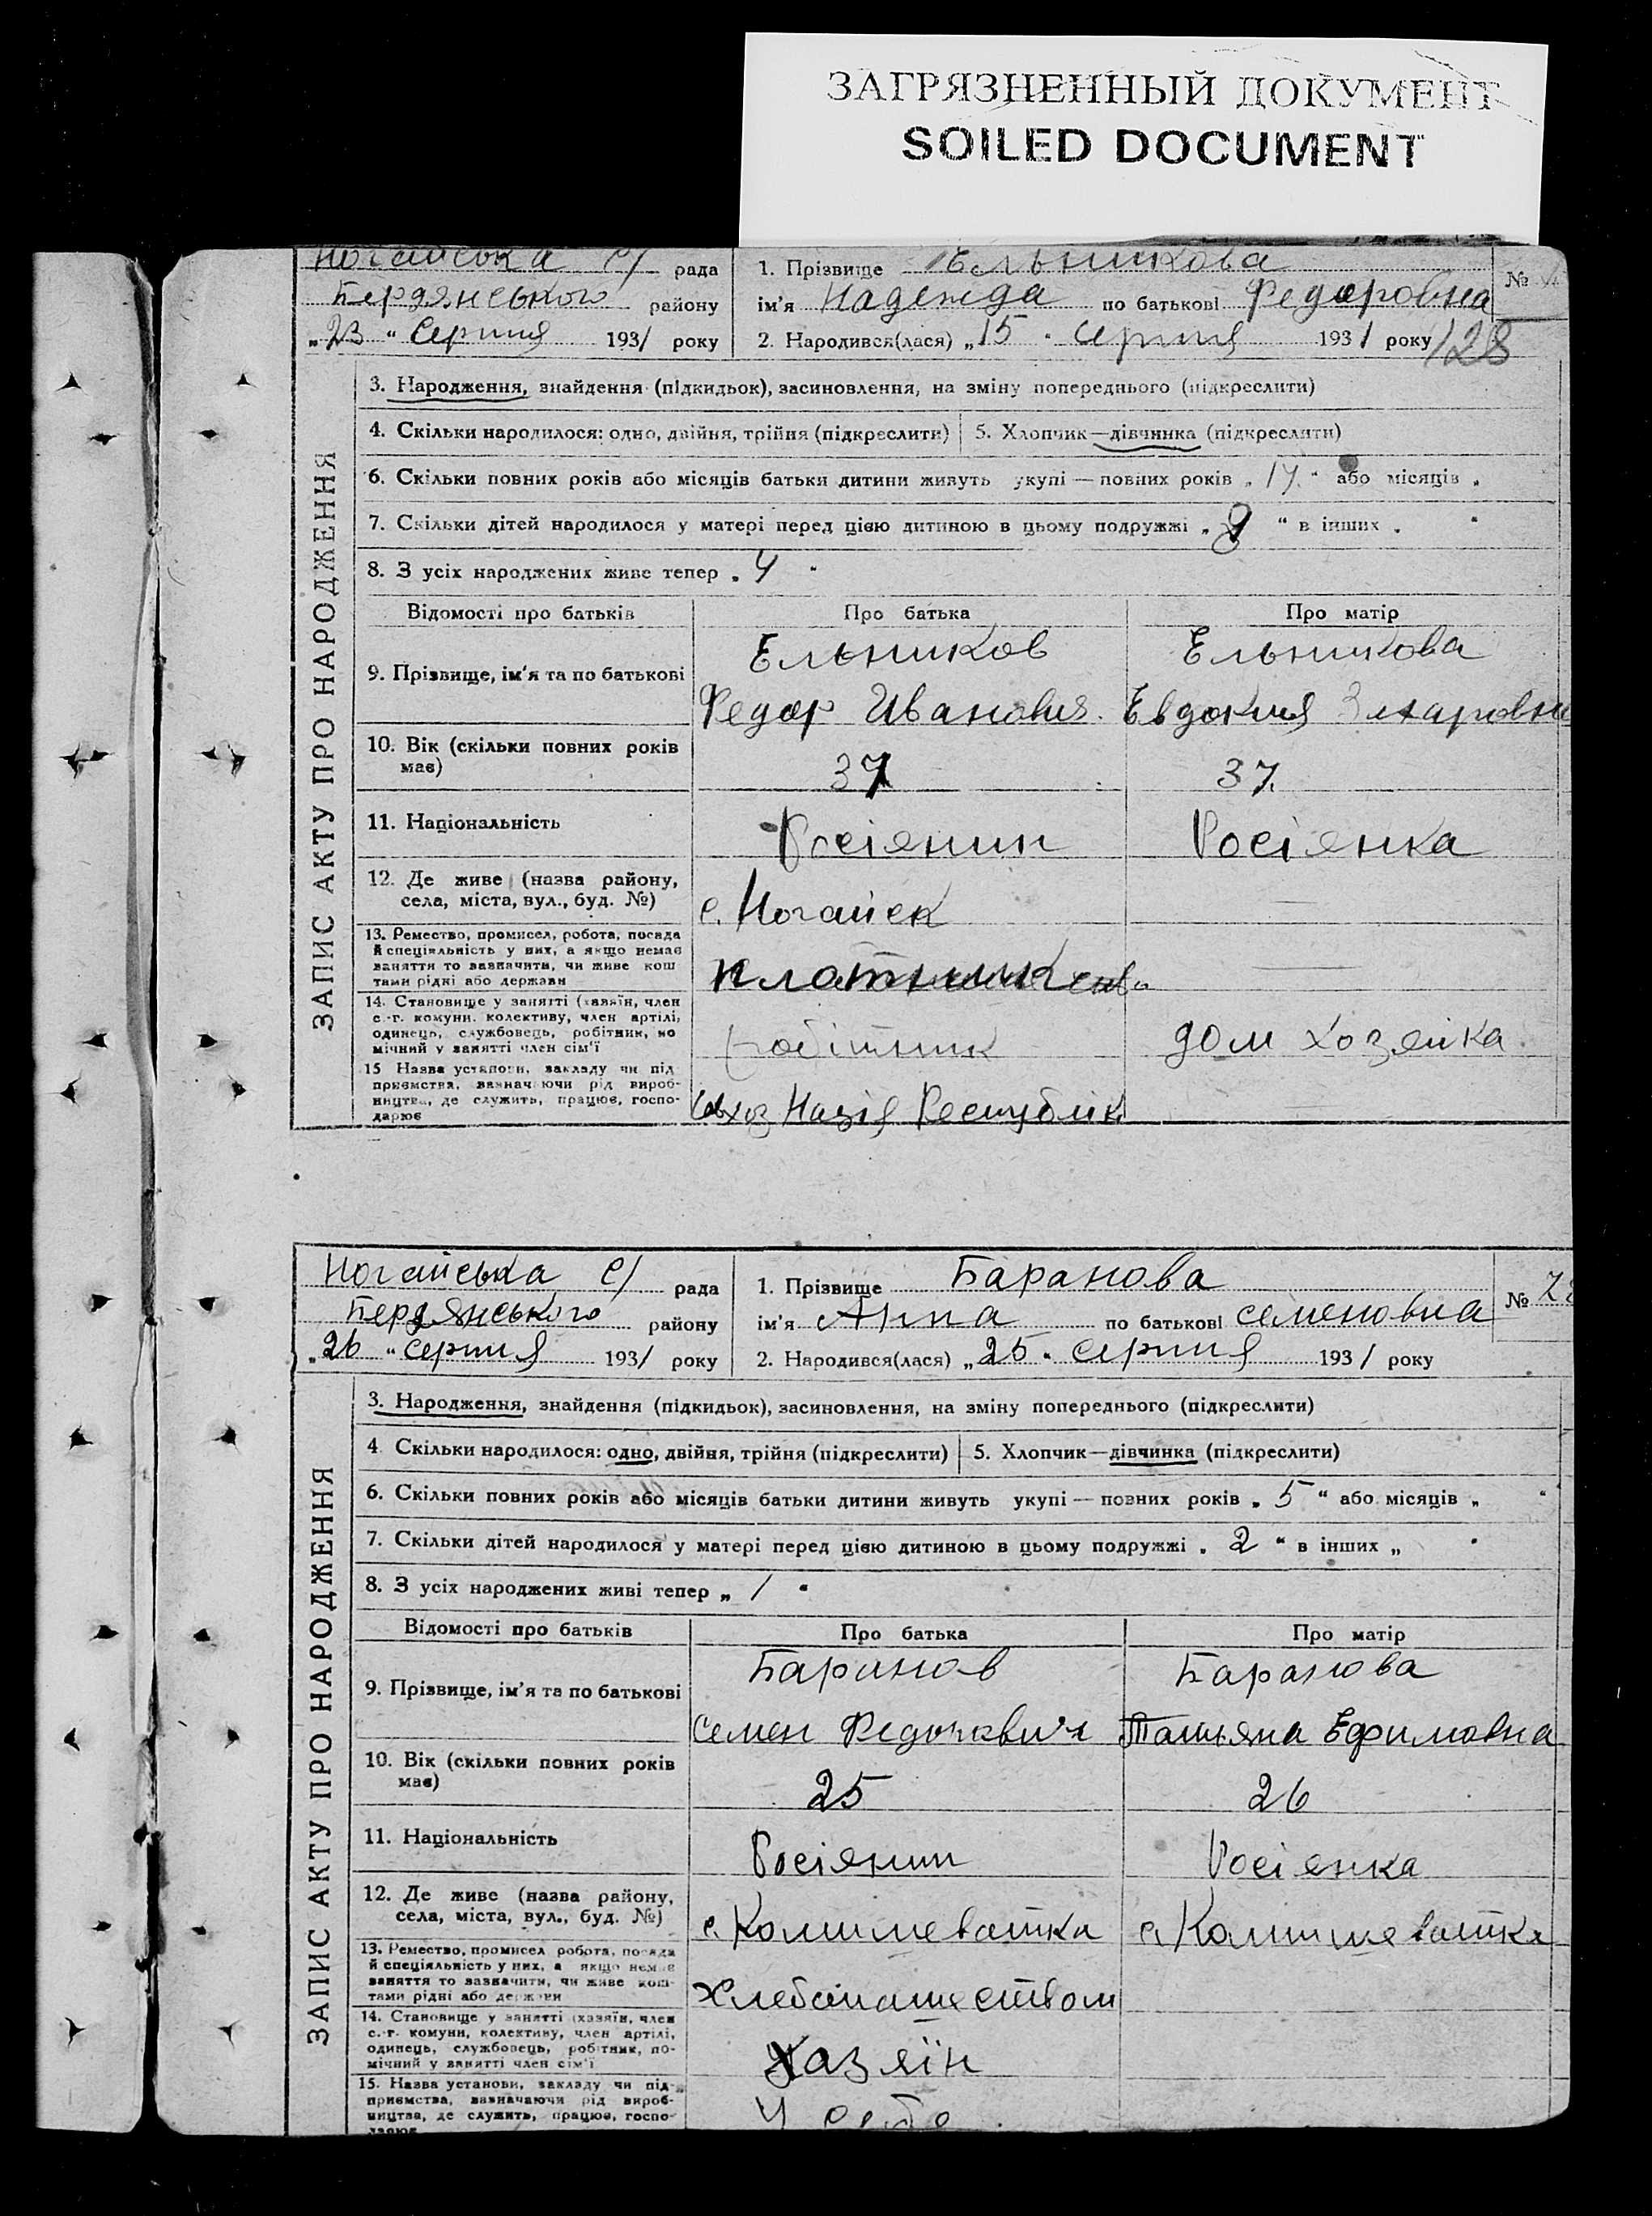 ЗАГРЯЗНЕННЫЙ ДОКУМЕНТ
SOILED DOCUMENT
Ногайська с/ рада
Бердянського району
„23“ Серпня 1931 року
1. Прізвище Ельникова
ім'я Надежда по батькові Федоровна
№
2. Народився(лася) „15“ серпня 1931 року
128
ЗАПИС АКТУ ПРО НАРОДЖЕННЯ
3. Народження, знайдення (підкидьок), засиновлення, на зміну попереднього (підкреслити)
4. Скільки народилося: одно, двійня, трійня (підкреслити) 5. Хлопчик—дівчинка (підкреслити)
6. Скільки повних років або місяців батьки дитини живуть укупі — повних років „17“ або місяців „
7. Скільки дітей народилося у матері перед цією дитиною в цьому подружжі „ “ в інших „ “
8. З усіх народжених живе тепер „4“
Відомості про батьків Про батька Про матір
9. Прізвище, ім'я та по батькові
Ельников Ельникова
Федор Иванович Евдокия Захаровна
10. Вік (скільки повних років має) 37 37
11. Національність Росіянин Росіянка
12. Де живе (назва району, села, міста, вул., буд. №)
с. Ногайск
13. Ремество, промисел, робота, посада
й спеціяльність у них, а якщо немає
заняття то зазначити, чи живе кош
тами рідні або держави
14. Становище у занятті (хазяїн, член
с.-г. комуни, колективу, член артілі,
одинець, службовець, робітник, по
мічний у занятті член сім'ї
робітник дом хозяйка
15 Назва установи, закладу чи під
приємства, зазначаючи рід вироб-
ництва, де служить, працює, госпо-
дарює
Ногайська с/ рада
Бердянського району
„26“ серпня 1931 року
1. Прізвище Баранова
ім'я Анна по батькові семеновна
№
2. Народився(лася) „25“ серпня 1931 року
ЗАПИС АКТУ ПРО НАРОДЖЕННЯ
3. Народження, знайдення (підкидьок), засиновлення, на зміну попереднього (підкреслити)
4 Скільки народилося: одно, двійня, трійня (підкреслити) 5. Хлопчик—дівчинка (підкреслити)
6. Скільки повних років або місяців батьки дитини живуть укупі — повних років „5“ або місяців „ “
7. Скільки дітей народилося у матері перед цією дитиною в цьому подружжі „2“ в інших „ “
8. З усіх народжених живі тепер „1“
Відомості про батьків Про батька Про матір
9. Прізвище, ім'я та по батькові
Баранов Баранова
Семен Федорович Татьяна Ефимовна
10. Вік (скільки повних років має) 25 26
11. Національність Росіянин Росіянка
12. Де живе (назва району, села, міста, вул., буд. №)
с. Комишеватка с. Комишеватка
13. Ремество, промисел робота, посада
й спеціяльність у них, а якщо немає
заняття то зазначити, чи живе кош-
тами рідні або держави
Хлебопашеством
14. Становище у занятті (хазяїн, член
с.-г. комуни, колективу, член артілі,
одинець, службовець, робітник, по-
мічний у занятті член сім'ї
Хазяїн
15. Назва установи, закладу чи під-
приємства, зазначаючи рід вироб-
ництва, де служить, працює, госпо-
дарює
У себе